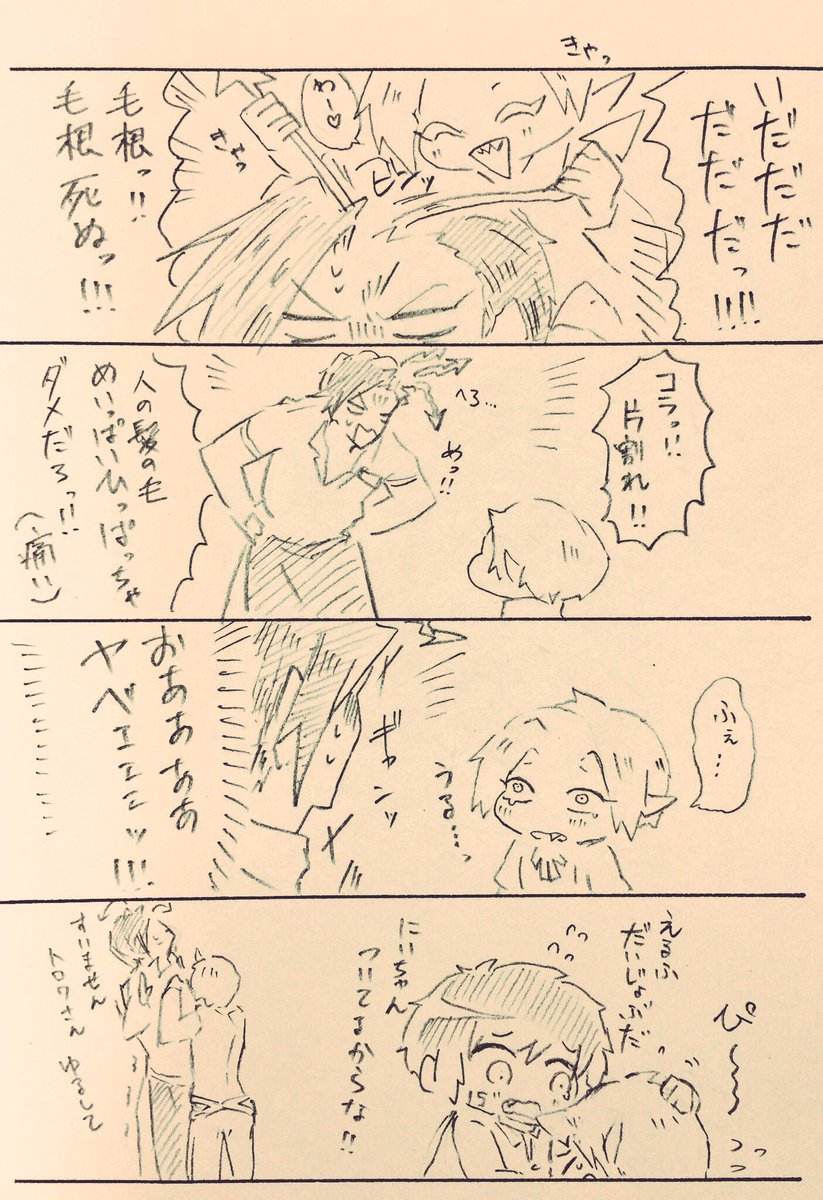 きゃっ
いだだだ
だだだっ!!!!
わー♡
ビンッ
きゃっ
毛根っ!!
毛根死ぬっ!!!
コラっ!!
片割れ!!
へろ…
めっ!!
人の髪の毛
めいっぱいひっぱっちゃ
ダメだろっ!!
(、痛い)
ふぇ…
うる…っ
ギャンッ
おああああ
ヤベェェェッ!!!
ぴ〜〜〜
えるふ
だいじょぶだ
にいちゃん
ついてるからな!!
すいません
トロワさん ゆるして